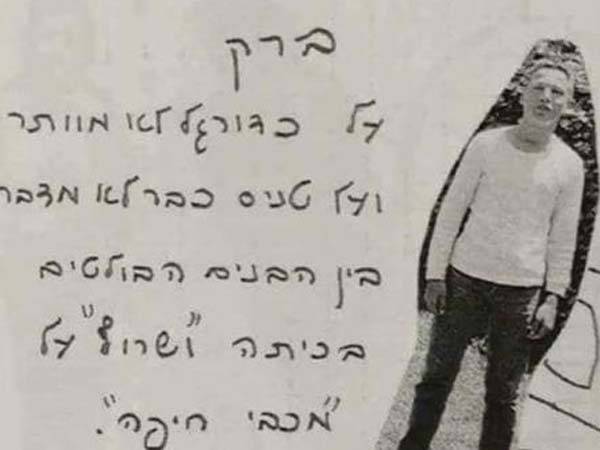 ברק
על כדורגל לא מוותר
ועל טניס כבר לא מדבר
בין הבנים הבולטים
בכיתה "ושרוף" על
"מכבי חיפה".